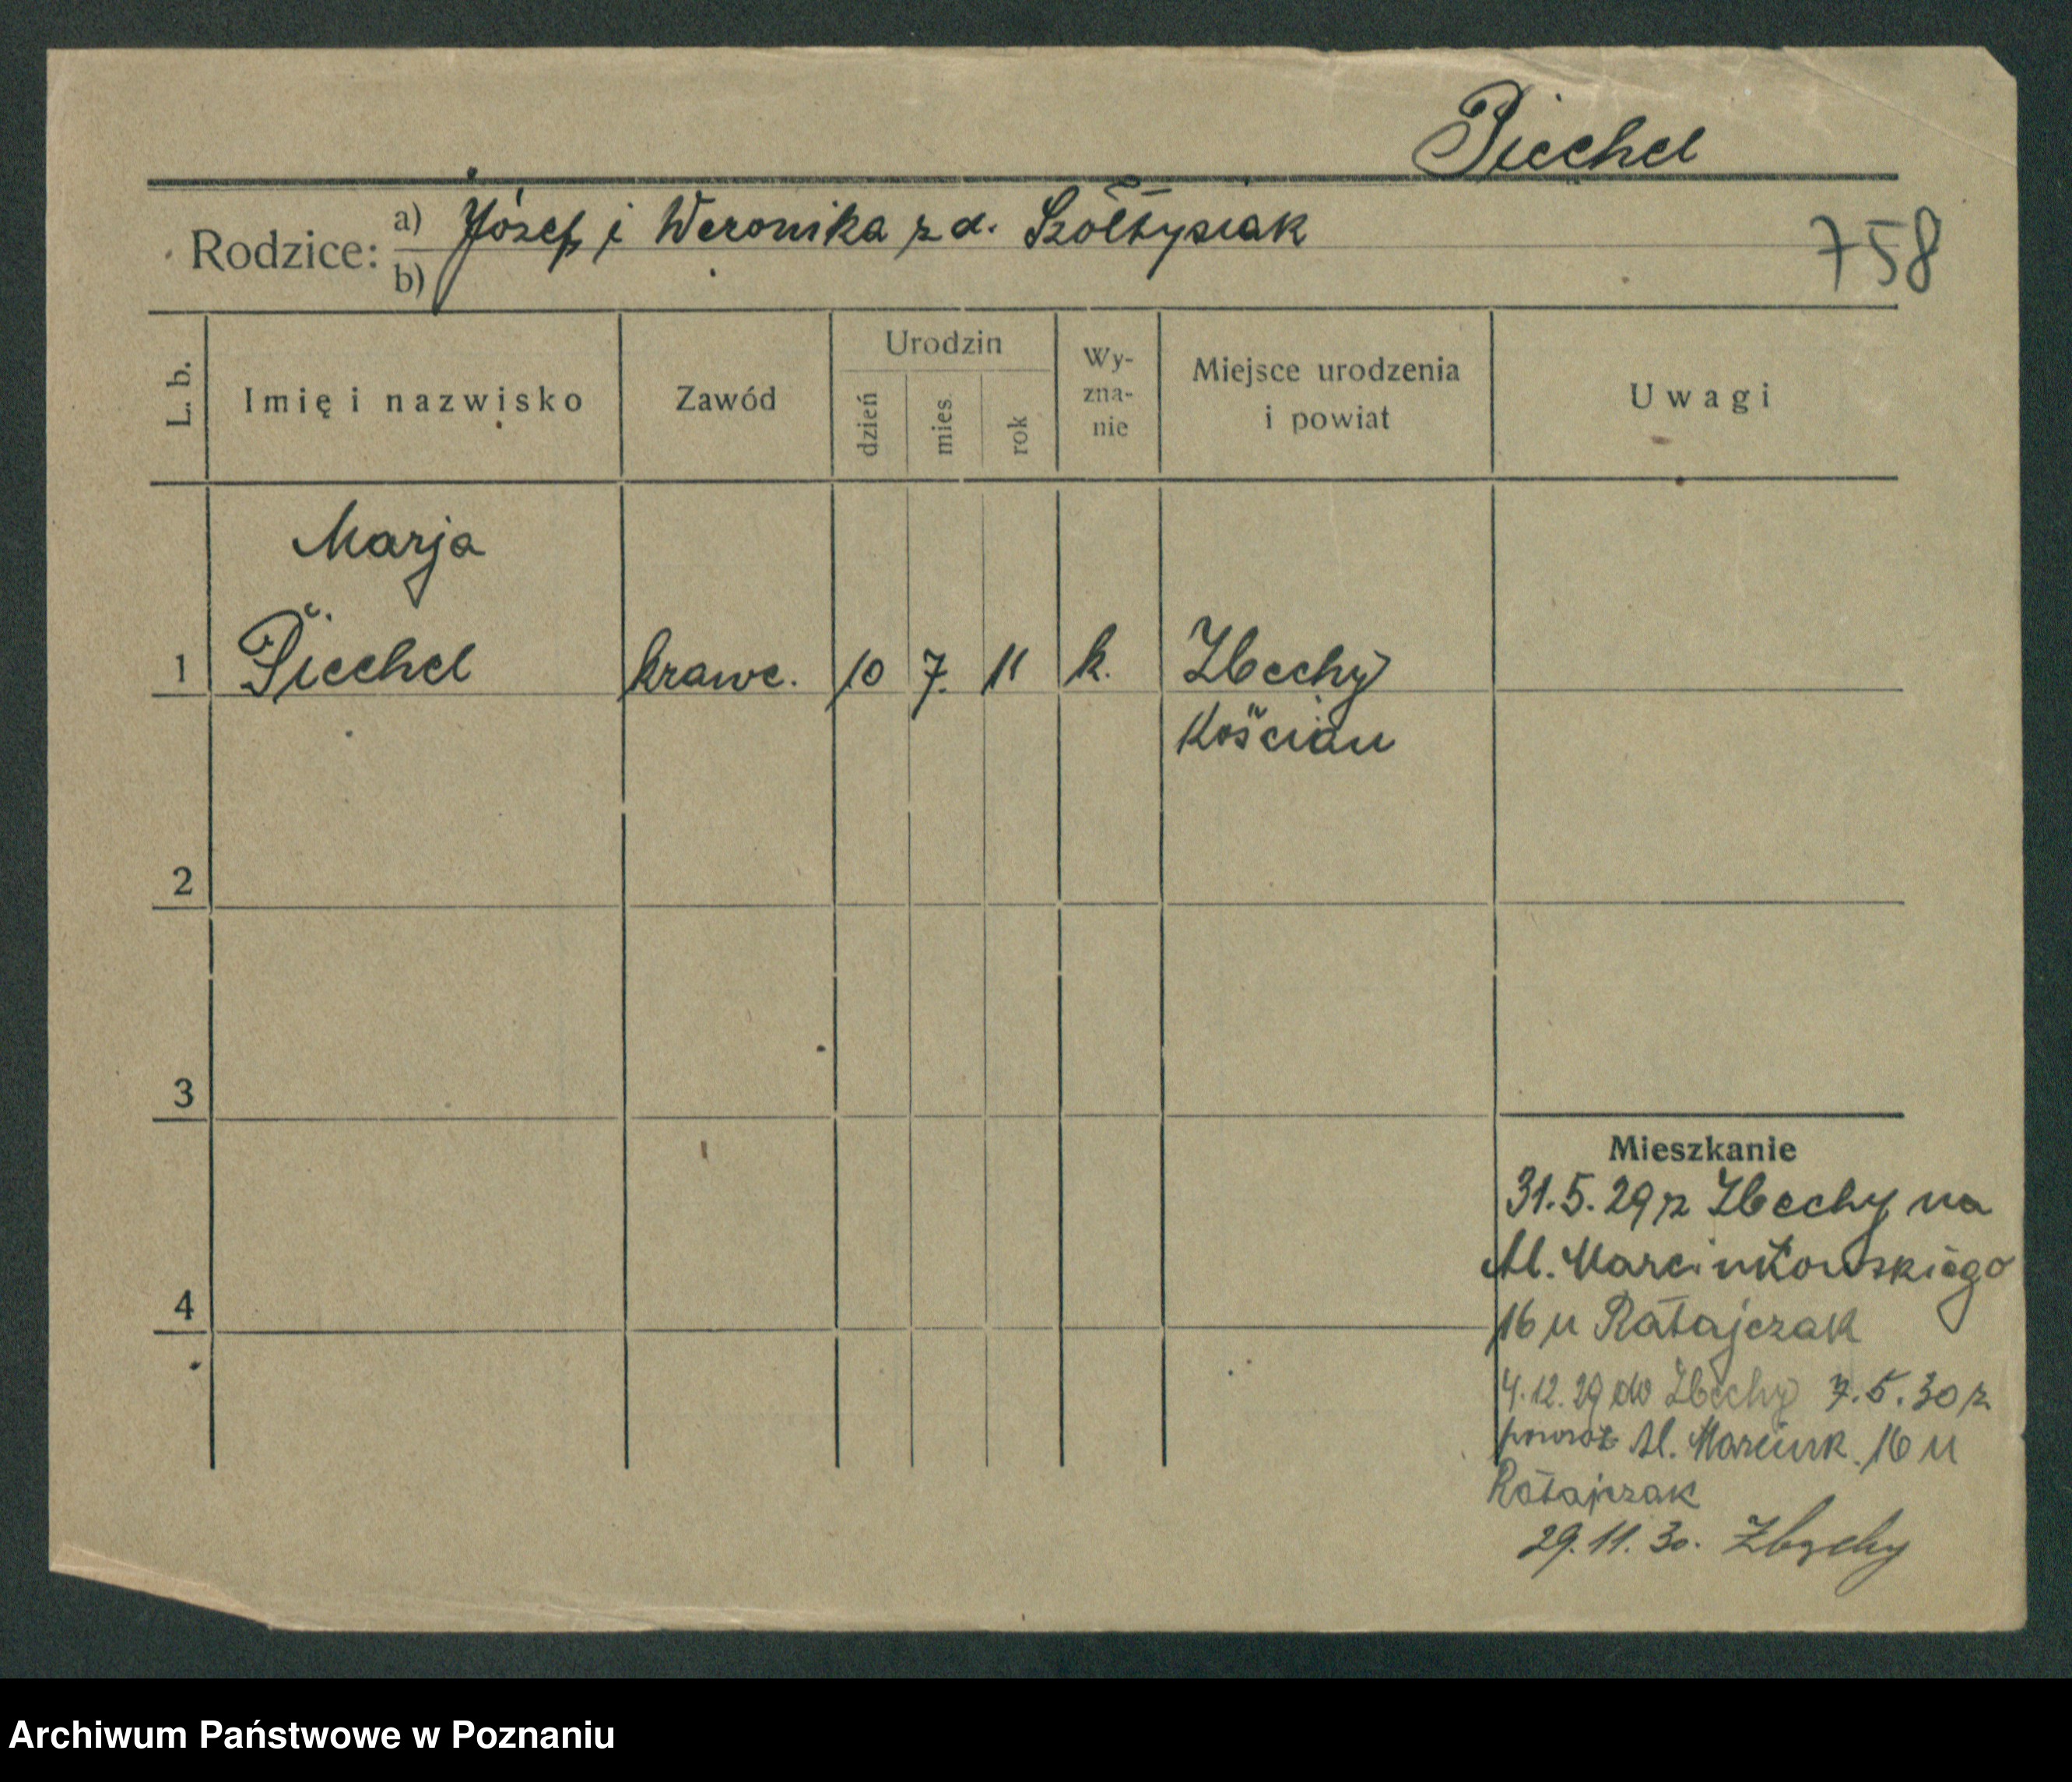 Piechel
Rodzice: a) Józef i Weronika z d. Szołtysiak
b)
758
L. b.
Imię i nazwisko
Zawód
Urodzin
dzień
mies.
rok
Wy-
zna-
nie
Miejsce urodzenia
i powiat
Uwagi
Marja
1 Piechel krawc. 10 7. 11 k. Zbechy
Kościan
2
3
4
Mieszkanie
31.5.29 z Zbechy na
Al. Marcinkowskiego
16 u Ratajczak
4.12.29 do Zbechy 7.5.30 z
powrot Al. Marcink. 16 u
Ratajczak
29.11.30. Zbechy
Archiwum Państwowe w Poznaniu